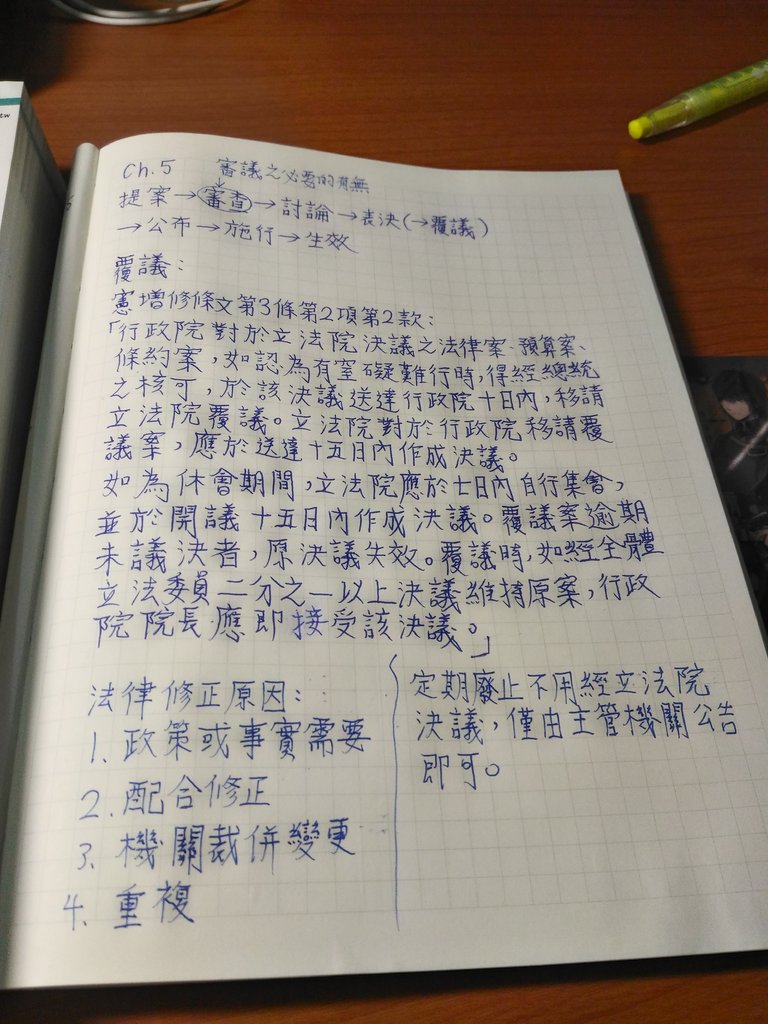 tw
Ch.5 審議之必要的有無
提案→審查→討論→表決(→覆議)
→公布→施行→生效
覆議：
憲增修條文第3條第2項第2款：
「行政院對於立法院決議之法律案、預算案、
條約案，如認為有窒礙難行時，得經總統
之核可，於該決議送達行政院十日內，移請
立法院覆議。立法院對於行政院移請覆
議案，應於送達十五日內作成決議。
如為休會期間，立法院應於七日內自行集會，
並於開議十五日內作成決議。覆議案逾期
未議決者，原決議失效。覆議時，如經全體
立法委員二分之一以上決議維持原案，行政
院院長應即接受該決議。」
法律修正原因：
1. 政策或事實需要
2. 配合修正
3. 機關裁併變更
4. 重複
定期廢止不用經立法院
決議，僅由主管機關公告
即可。